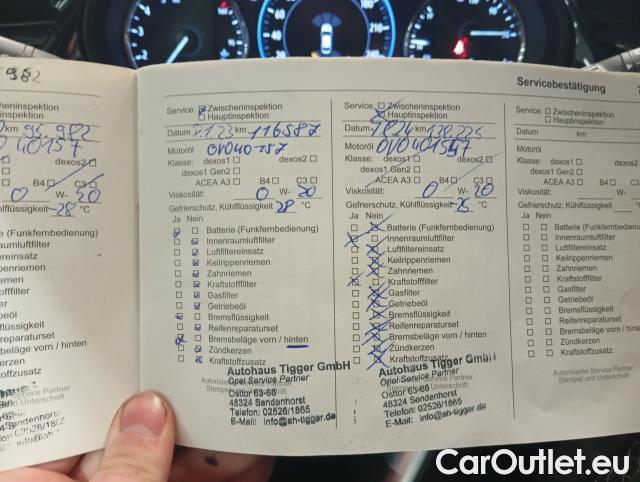 982
Servicebestätigung
cheninspektion
inspektion
km 95.982
040157
dexos2
B4 C3
0 W- 20
hlflüssigkeit -28 °C
e (Funkfernbedienung)
raumluftfilter
tereinsatz
penriemen
emen
offfilter
er
eöl
lüssigkeit
eparaturset
eläge vorn / hinten
erzen
ffzusatz
Service: Zwischeninspektion
Hauptinspektion
Datum 8.1.23 km 116587
Motoröl OV040157
Klasse: dexos1 dexos2
dexos1 Gen2
ACEA A3 B4 C3
Viskosität: 0 W- 20
Gefrierschutz, Kühlflüssigkeit 28 °C
Ja Nein
Batterie (Funkfernbedienung)
Innenraumluftfilter
Luftfiltereinsatz
Keilrippenriemen
Zahnriemen
Kraftstofffilter
Gasfilter
Getriebeöl
Bremsflüssigkeit
Reifenreparaturset
Bremsbeläge vorn / hinten
Zündkerzen
Kraftstoffzusatz
Autohaus Tigger GmbH
Opel Service Partner
Ostor 63-65
48324 Sendenhorst
Telefon: 02526/1865
E-Mail: info@ah-tigger.de
Service: Zwischeninspektion
Hauptinspektion
Datum km
Motoröl OV040157
Klasse: dexos1 dexos2
dexos1 Gen2
ACEA A3 B4 C3
Viskosität: 0 W- 20
Gefrierschutz, Kühlflüssigkeit -25 °C
Ja Nein
Batterie (Funkfernbedienung)
Innenraumluftfilter
Luftfiltereinsatz
Keilrippenriemen
Zahnriemen
Kraftstofffilter
Gasfilter
Getriebeöl
Bremsflüssigkeit
Reifenreparaturset
Bremsbeläge vorn / hinten
Zündkerzen
Kraftstoffzusatz
Autohaus Tigger GmbH
Opel Service Partner
Ostor 63-65
48324 Sendenhorst
Telefon: 02526/1865
E-Mail: info@ah-tigger.de
Service: Zwischeninspektion
Hauptinspektion
Datum km
Motoröl
Klasse: dexos1 dexos2
dexos1 Gen2
ACEA A3 B4 C3
Viskosität: W-
Gefrierschutz, Kühlflüssigkeit °C
Ja Nein
Batterie (Funkfernbedienung)
Innenraumluftfilter
Luftfiltereinsatz
Keilrippenriemen
Zahnriemen
Kraftstofffilter
Gasfilter
Getriebeöl
Bremsflüssigkeit
Reifenreparaturset
Bremsbeläge vorn / hinten
Zündkerzen
Kraftstoffzusatz
Autorisierter Service Partner
Stempel und Unterschrift
CarOutlet.eu